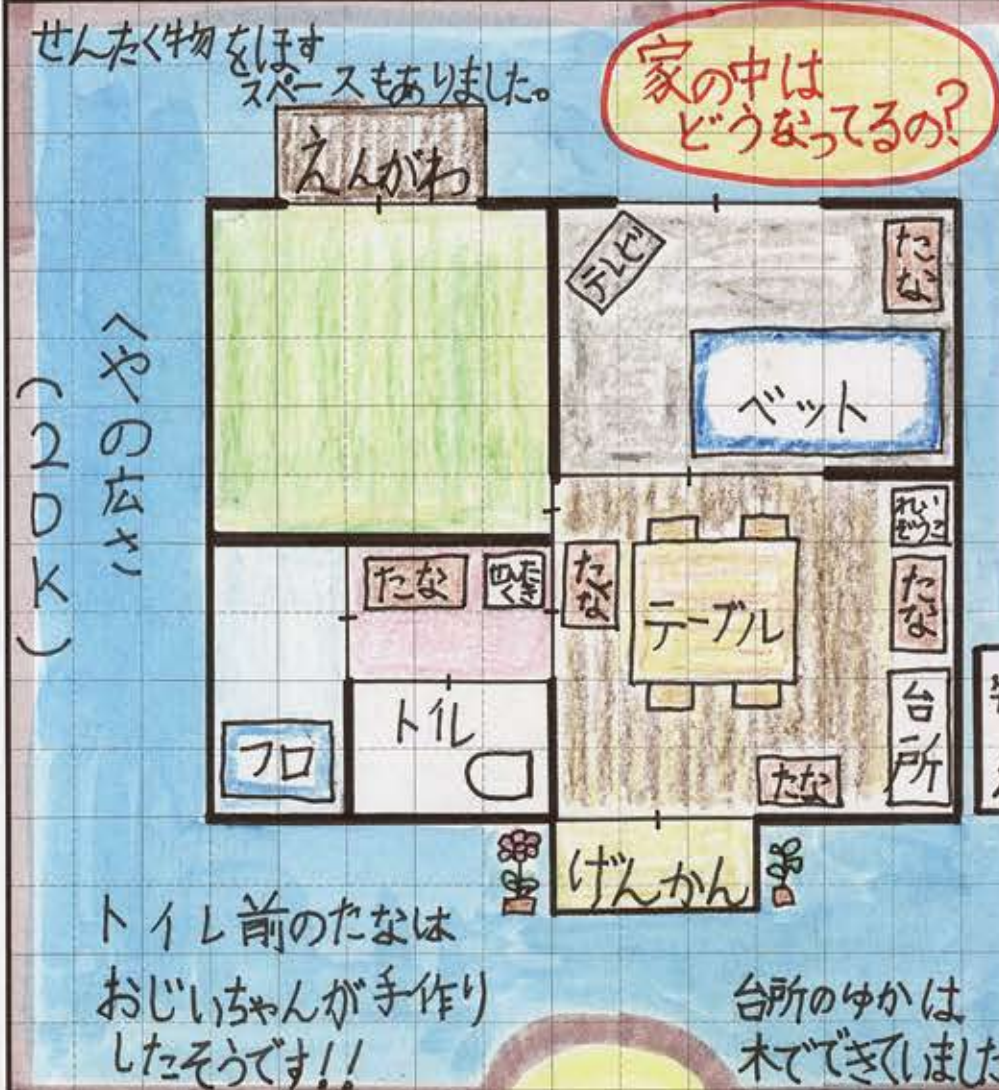 せんたく物をほす
スペースもありました。
家の中は
どうなってるの?
えんがわ
テレビ
たな
ベット
へやの広さ
(2DK)
れいぞうこ
たな
せんたくき
たな
テーブル
たな
トイレ
台所
フロ
たな
げんかん
トイレ前のたなは
おじいちゃんが手作り
したそうです!!
台所のゆかは
木でできていました